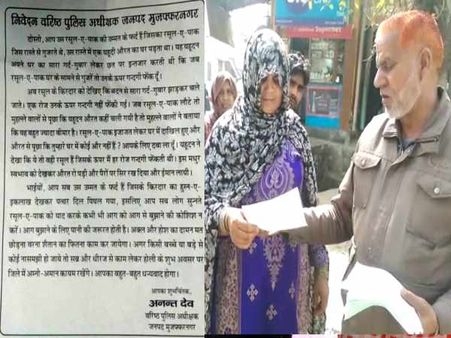 निवेदन वरिष्ठ पुलिस अधीक्षक जनपद मुजफ्फरनगर
दोस्तो, आप उस रसूल-ए-पाक की उम्मत के फर्द हैं जिसका रसूल-ए-पाक
जिस रास्ते से गुजारते थे, उस रास्ते में एक यहूदी औरत का घर पड़ता था। यह यहूदन
अपने घर का सारा गर्द-गुबार लेकर छत पर इन्तजार करती थी कि जब
रसूल-ए-पाक घर के सामने से गुजरें तो उनके ऊपर गन्दगी फेंकू दूँ।
अब रसूल के किरदार को देखिए कि बदन से सारा गर्द-गुबार झाड़कर चले
जाते। एक रोज उनके ऊपर गन्दगी नहीं फेंकी गयी। जब रसूल-ए-पाक लौटे तो
मुहल्ले वालों से पूछा कि यहूदन औरत कहीं चली गयी है तो मुहल्ले वालों ने बताया
कि वह बहुत ज्यादा बीमार है। रसूल-ए-पाक इजाजत लेकर घर में दाखिल हुए और
औरत से पूछा कि तुम्हारे घर में कोई और नहीं है? आपके लिए दवा ला दूँ। यहूदन ने
देखा कि ये तो वही रसूल हैं जिसके ऊपर मैं हर रोज गन्दगी फेंकती थी। इस मधुर
स्वभाव को देखकर औरत रो पड़ी और पैरों पर सिर रख दिया और ईमान लायी।
भाईयों, आप सब उस उम्मत के फर्द हैं जिसके किरदार का हुस्न-ए-
इकलाख देखकर पत्थर दिल पिघल गया, इसलिए आप सब लोग सुन्नते
रसूल-ए-पाक को याद करके कभी भी आग को आग से बुझाने की कोशिश न
करें। आग बुझाने के लिए पानी की जरूरत होती है। अक्ल और होश का दामन मत
छोड़ना वरना शैतान का फितना काम कर जायेगा। अगर किसी बच्चे या बड़े से
कोई नासमझी हो जाये तो सब्र और धीरज से काम लेकर होली के शुभ अवसर पर
जिले में अम्नो-अमान कायम रखेंगे। आपका बहुत-बहुत धन्यवाद होगा।
आपका शुभचिंतक,
अनन्त देव
वरिष्ठ पुलिस अधीक्षक
जनपद मुजफ्फरनगर